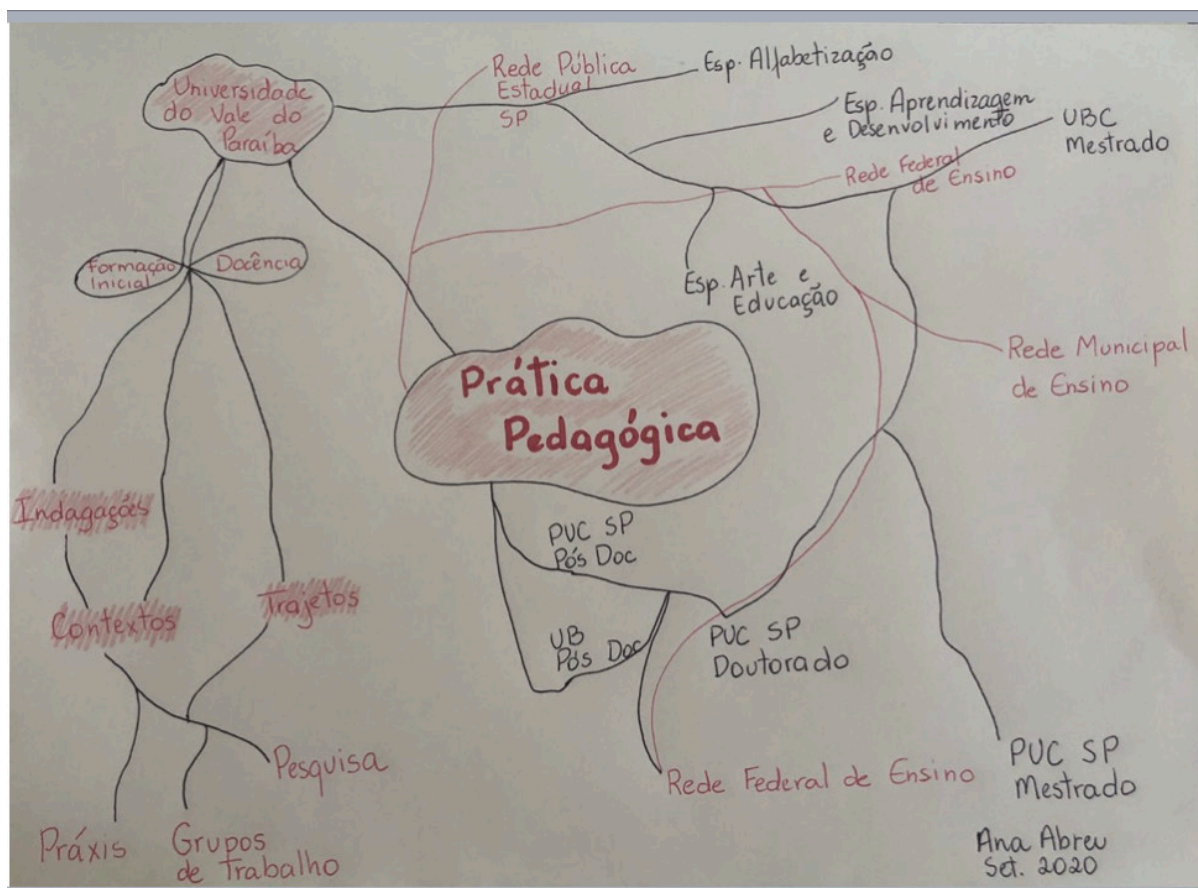 Universidade
do Vale do
Paraíba
Rede Pública
Estadual
SP
Esp. Alfabetização
Esp. Aprendizagem
e Desenvolvimento
UBC
Mestrado
Rede Federal
de Ensino
Formação
Inicial
Docência
Esp. Arte e
Educação
Rede Municipal
de Ensino
Prática
Pedagógica
Indagações
Contextos
Trajetos
PUC SP
Pós Doc
UB
Pós Doc
PUC SP
Doutorado
Pesquisa
Rede Federal de Ensino
PUC SP
Mestrado
Práxis
Grupos
de Trabalho
Ana Abreu
Set. 2020